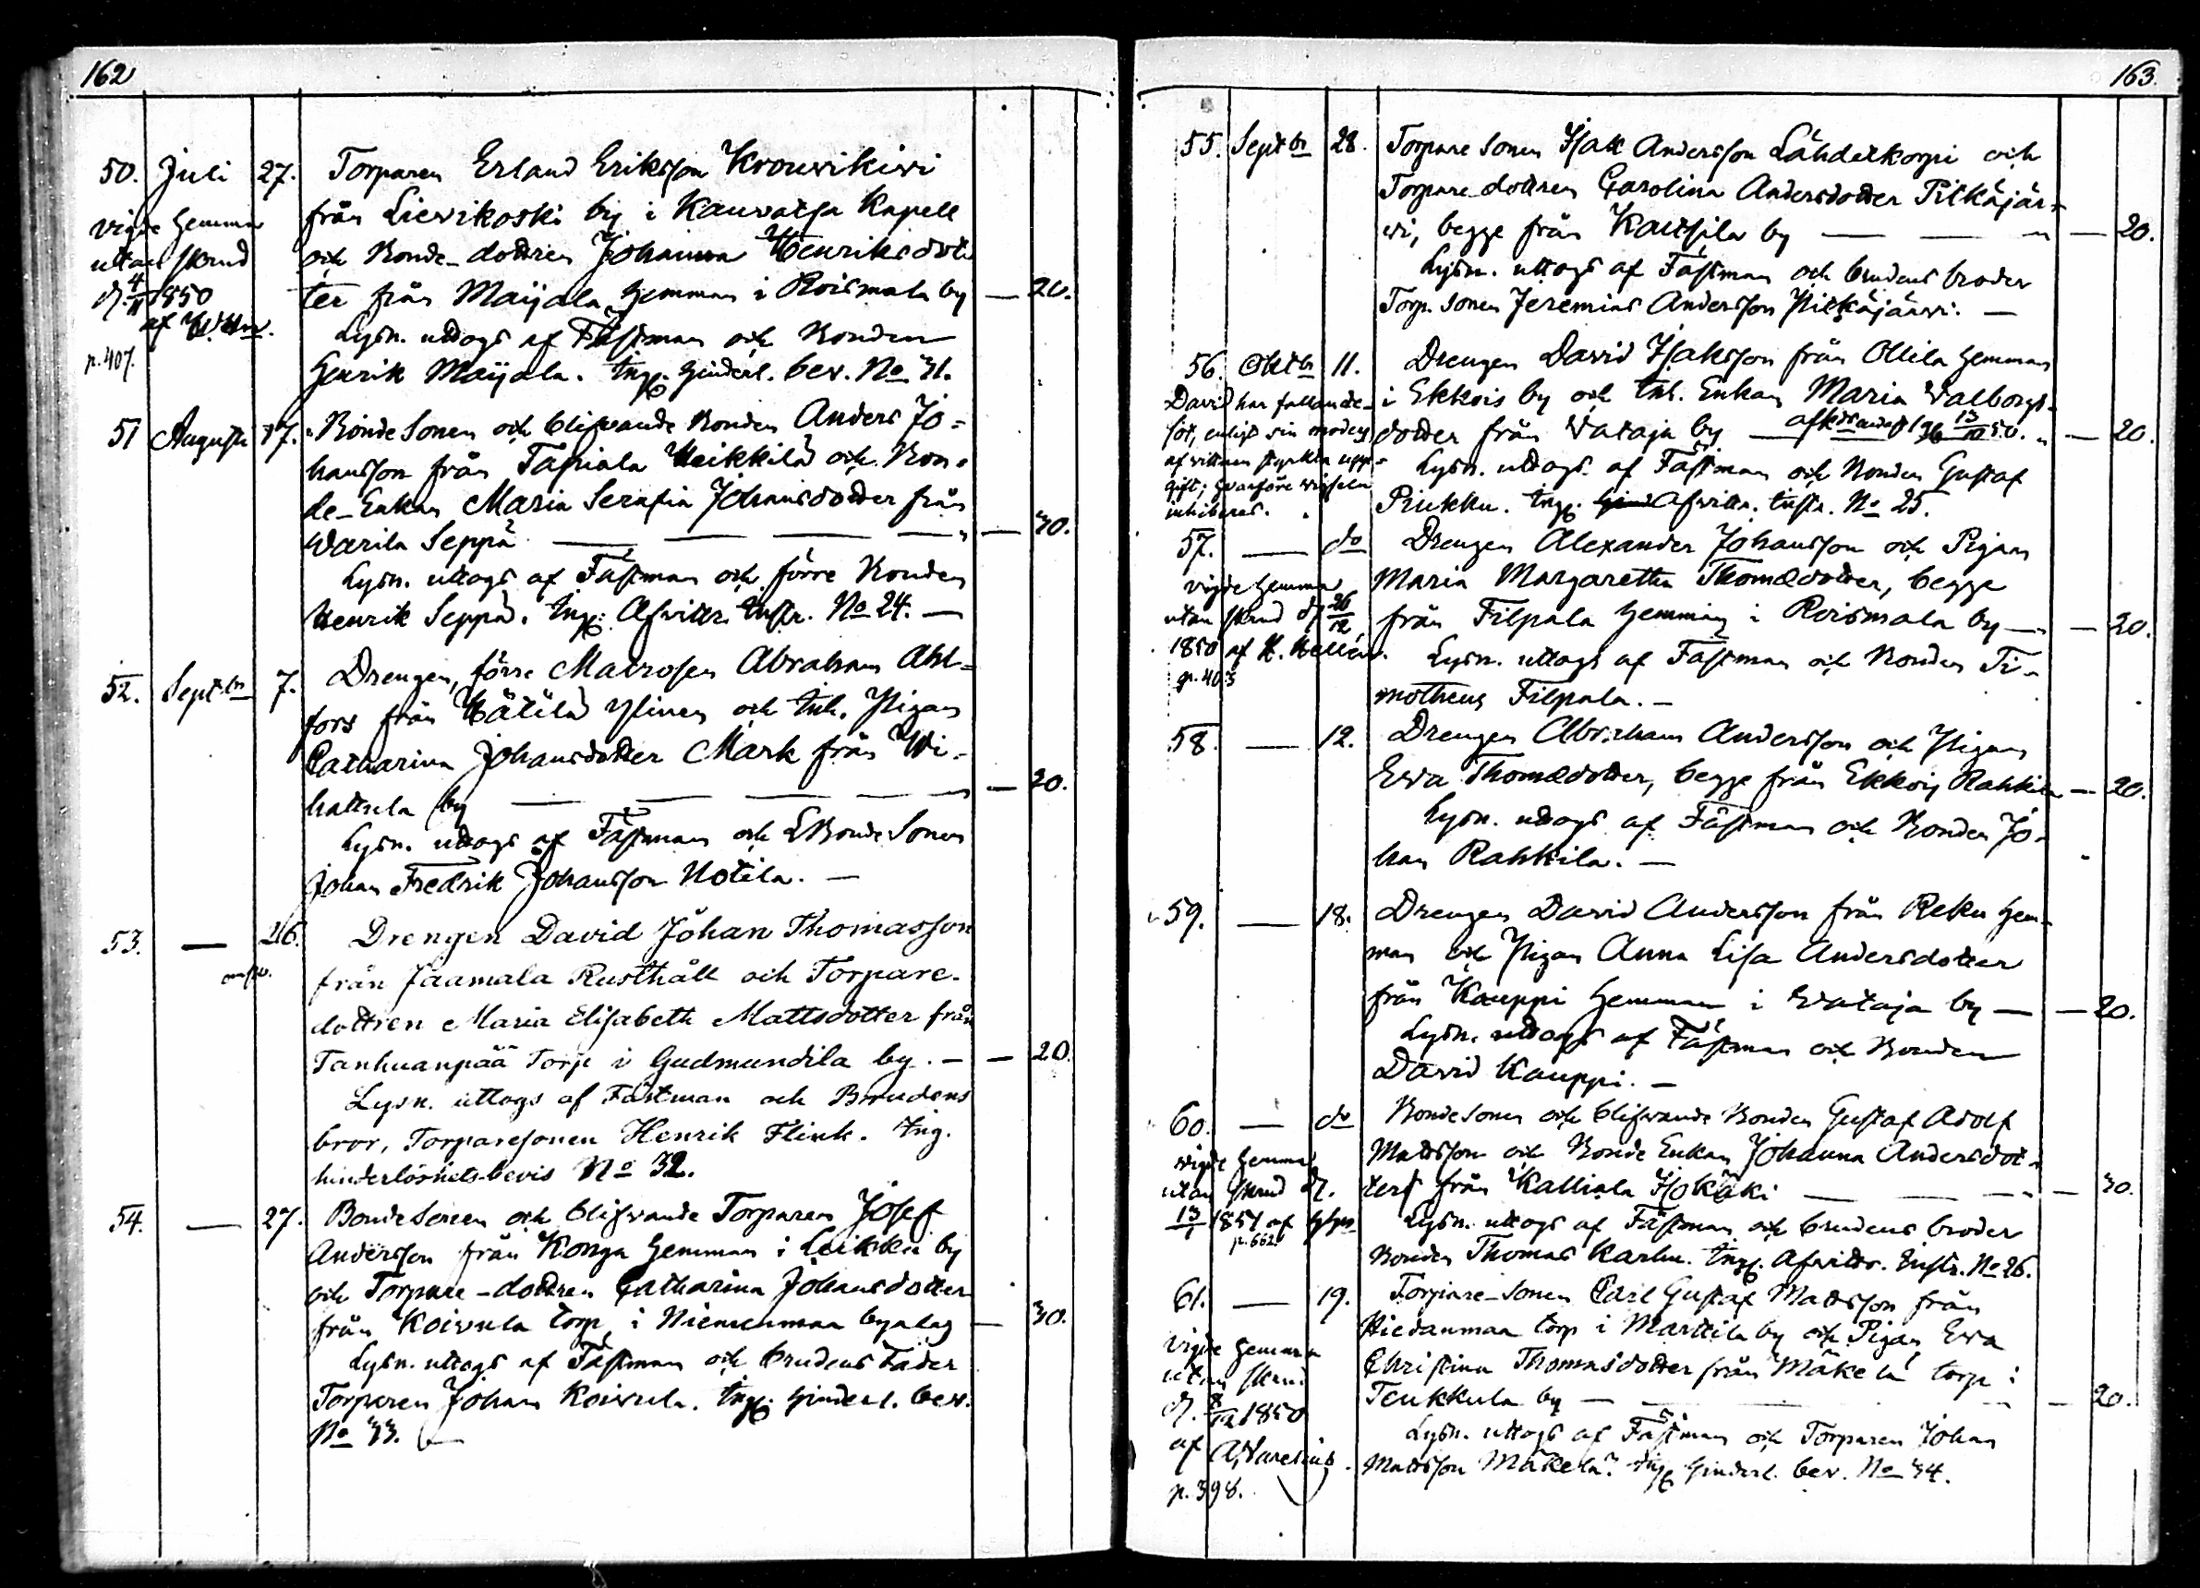 162
50. Juli 27. Torparen Erland Eriksson Krouvikivi
vigde hemma från Lievikoski by i Kauvatsa Kapell
utan skrud och Bonde-dottren Johanna Henriksdot-
d. 4/11 1850 ter från Maijala hemman i Roismala by — 20.
af
Lysn. uttogs af Fästman och Bonden
p. 407. Henrik Maijala. Ing. hinderl. bev. No 31.
51 Augusti 17. Bonde Sonen och blifvande Bonden Anders Jo-
hansson från Tapiala Heikkilä och Bon-
de-Enkan Maria Serafia Johansdotter från
Warila Seppä — — — — 30.
Lysn. uttogs af Fästman och förre Bonden
Henrik Seppä. Ing. Afvittr. Instr. No 24. —
52. Septbr 7. Drengen, förre Matrosen Abraham Ahl-
fors från Kätilä Ylinen och Inh. Pigan
Catharina Johansdotter Mark från Wi-
hattula by — — — — 20.
Lysn. uttogs af Fästman och Bonde Sonen
Johan Fredrik Johansson Notila. —
53. — 26. Drengen David Johan Thomasson
från Jaamala Rusthåll och Torpare-
dottren Maria Elisabeth Mattsdotter från
Tanhuanpää Torp i Gudmundila by. — — 20.
Lysn. uttogs af Fästman och Brudens
bror, Torparesonen Henrik Flink. Ing.
hinderlöshets-bevis No 32.
54. — 27. Bonde Sonen och blifvande Torparen Josef
Andersson från Konga hemman i Leikku by
och Torpare-dottren Catharina Johansdotter
från Koivula torp i Niemenmaa byalag — 30.
Lysn. uttogs af Fästman och brudens Fader
Torparen Johan Koivula. Ing. hinderl. bev.
No 33. —
163.
55. Septbr 28. Torpare Sonen Isak Andersson Lähdekorpi och
Torpare-dottren Carolina Andersdotter Pitkäjär-
vi, begge från Kaltsila by — — — 20.
Lysn. uttogs af Fästman och brudens broder
Torp. Sonen Jeremias Andersson Pitkäjärvi. —
56. Oktbr 11. Drengen David Isaksson från Ollila hemman
David har fallande- i Ekkois by och Inh. Enkan Maria Valborgs-
sot, enligt sin moders dotter från Vataja by — — 20.
af vittnen styrkta upp- Lysn. uttogs af Fästman och Bonden Gustaf
gift; hvarföre vigseln Piukku. Ing. Afvittr. Instr. No 25.
inhiberas.
57. — do Drengen Alexander Johansson och Pigan
vigde hemma Maria Margaretha Thomædotter, begge
utan skrud d. 26/12 från Filpala hemman i Roismala by — — 20.
1850 af H. Hellén. Lysn. uttogs af Fästman och Bonden Ti-
p. 403 motheus Filpala. —
58. — 12. Drengen Abraham Andersson och Pigan
Eva Thomædotter, begge från Ekkois Rahkila — 20.
Lysn. uttogs af Fästman och Bonden Jo-
han Rahkila. —
59. — 18. Drengen David Andersson från Reku hem-
man och Pigan Anna Lisa Andersdotter
från Kauppi hemman i Vataja by — — 20.
Lysn. uttogs af Fästman och Bonden
David Kauppi. —
60. — do Bonde Sonen och blifvande Bonden Gustaf Adolf
vigde hemma Mattsson och Bonde Enkan Johanna Andersdot-
utan skrud d. ter från Kalliala Isokäki — — — 30.
13/1 1851 af Lysn. uttogs af Fästman och brudens broder
p. 662. Bonden Thomas Karhu. Ing. Afvittr. Instr. No 26.
61. — 19. Torpare-Sonen Carl Gustaf Mattsson från
Hiedanmaa torp i Marttila by och Pigan Eva
vigde hemma Christina Thomasdotter från Mäkelä torp i
utan skrud Teukkula by — — — 20.
d. 8/12 1850 Lysn. uttogs af Fästman och Torparen Johan
af A. Varelius. Mattsson Mäkelä. Ing. hinderl. bev. No 34.
p. 398.